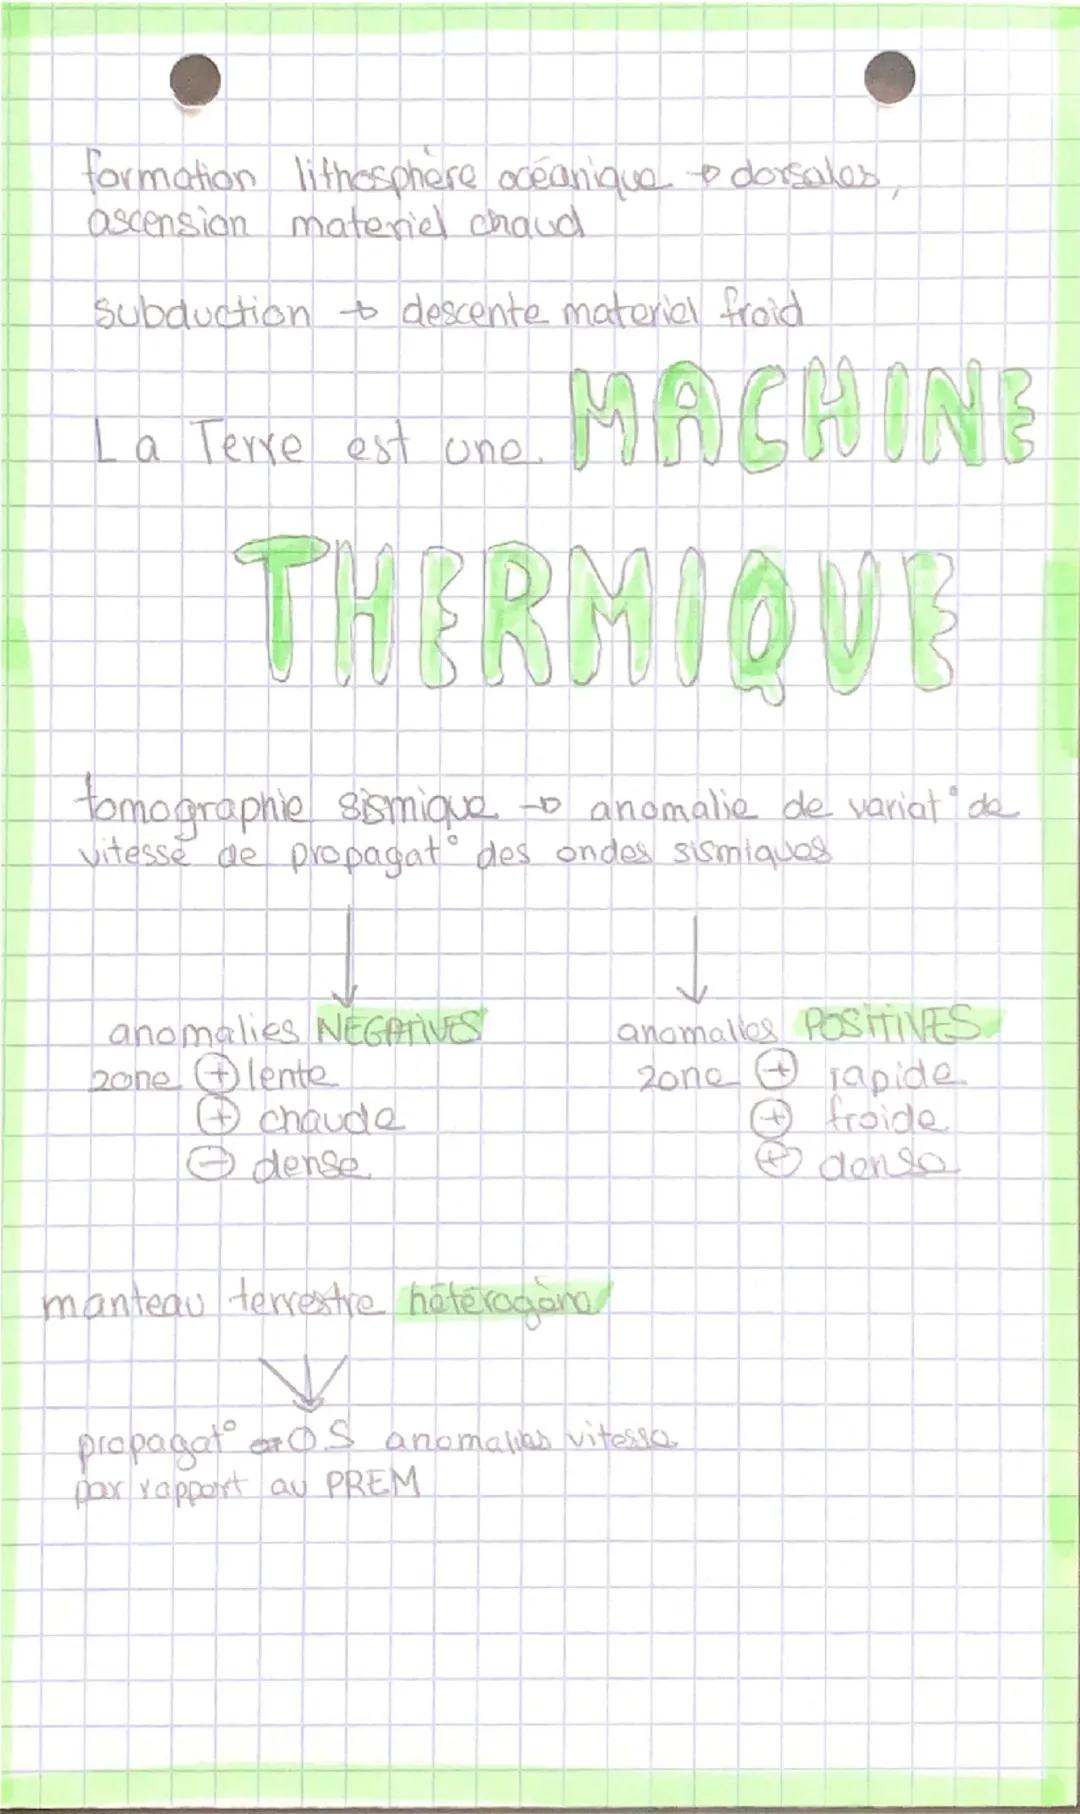 formation lithosphère océanique → dorsales,
ascension materiel chaud
subduction → descente materiel froid
La Terre est une MACHINE
THERMIQUE
tomographie sismique → anomalie de variat° de
vitesse de propagat° des ondes sismiques
↓ ↓
anomalies NÉGATIVES anomalies POSITIVES
zone ⊕ lente zone ⊕ rapide
⊕ chaude ⊕ froide
⊖ dense ⊕ dense
manteau terrestre hétérogène
↓
propagat° O.S anomalies vitesse
par rapport au PREM